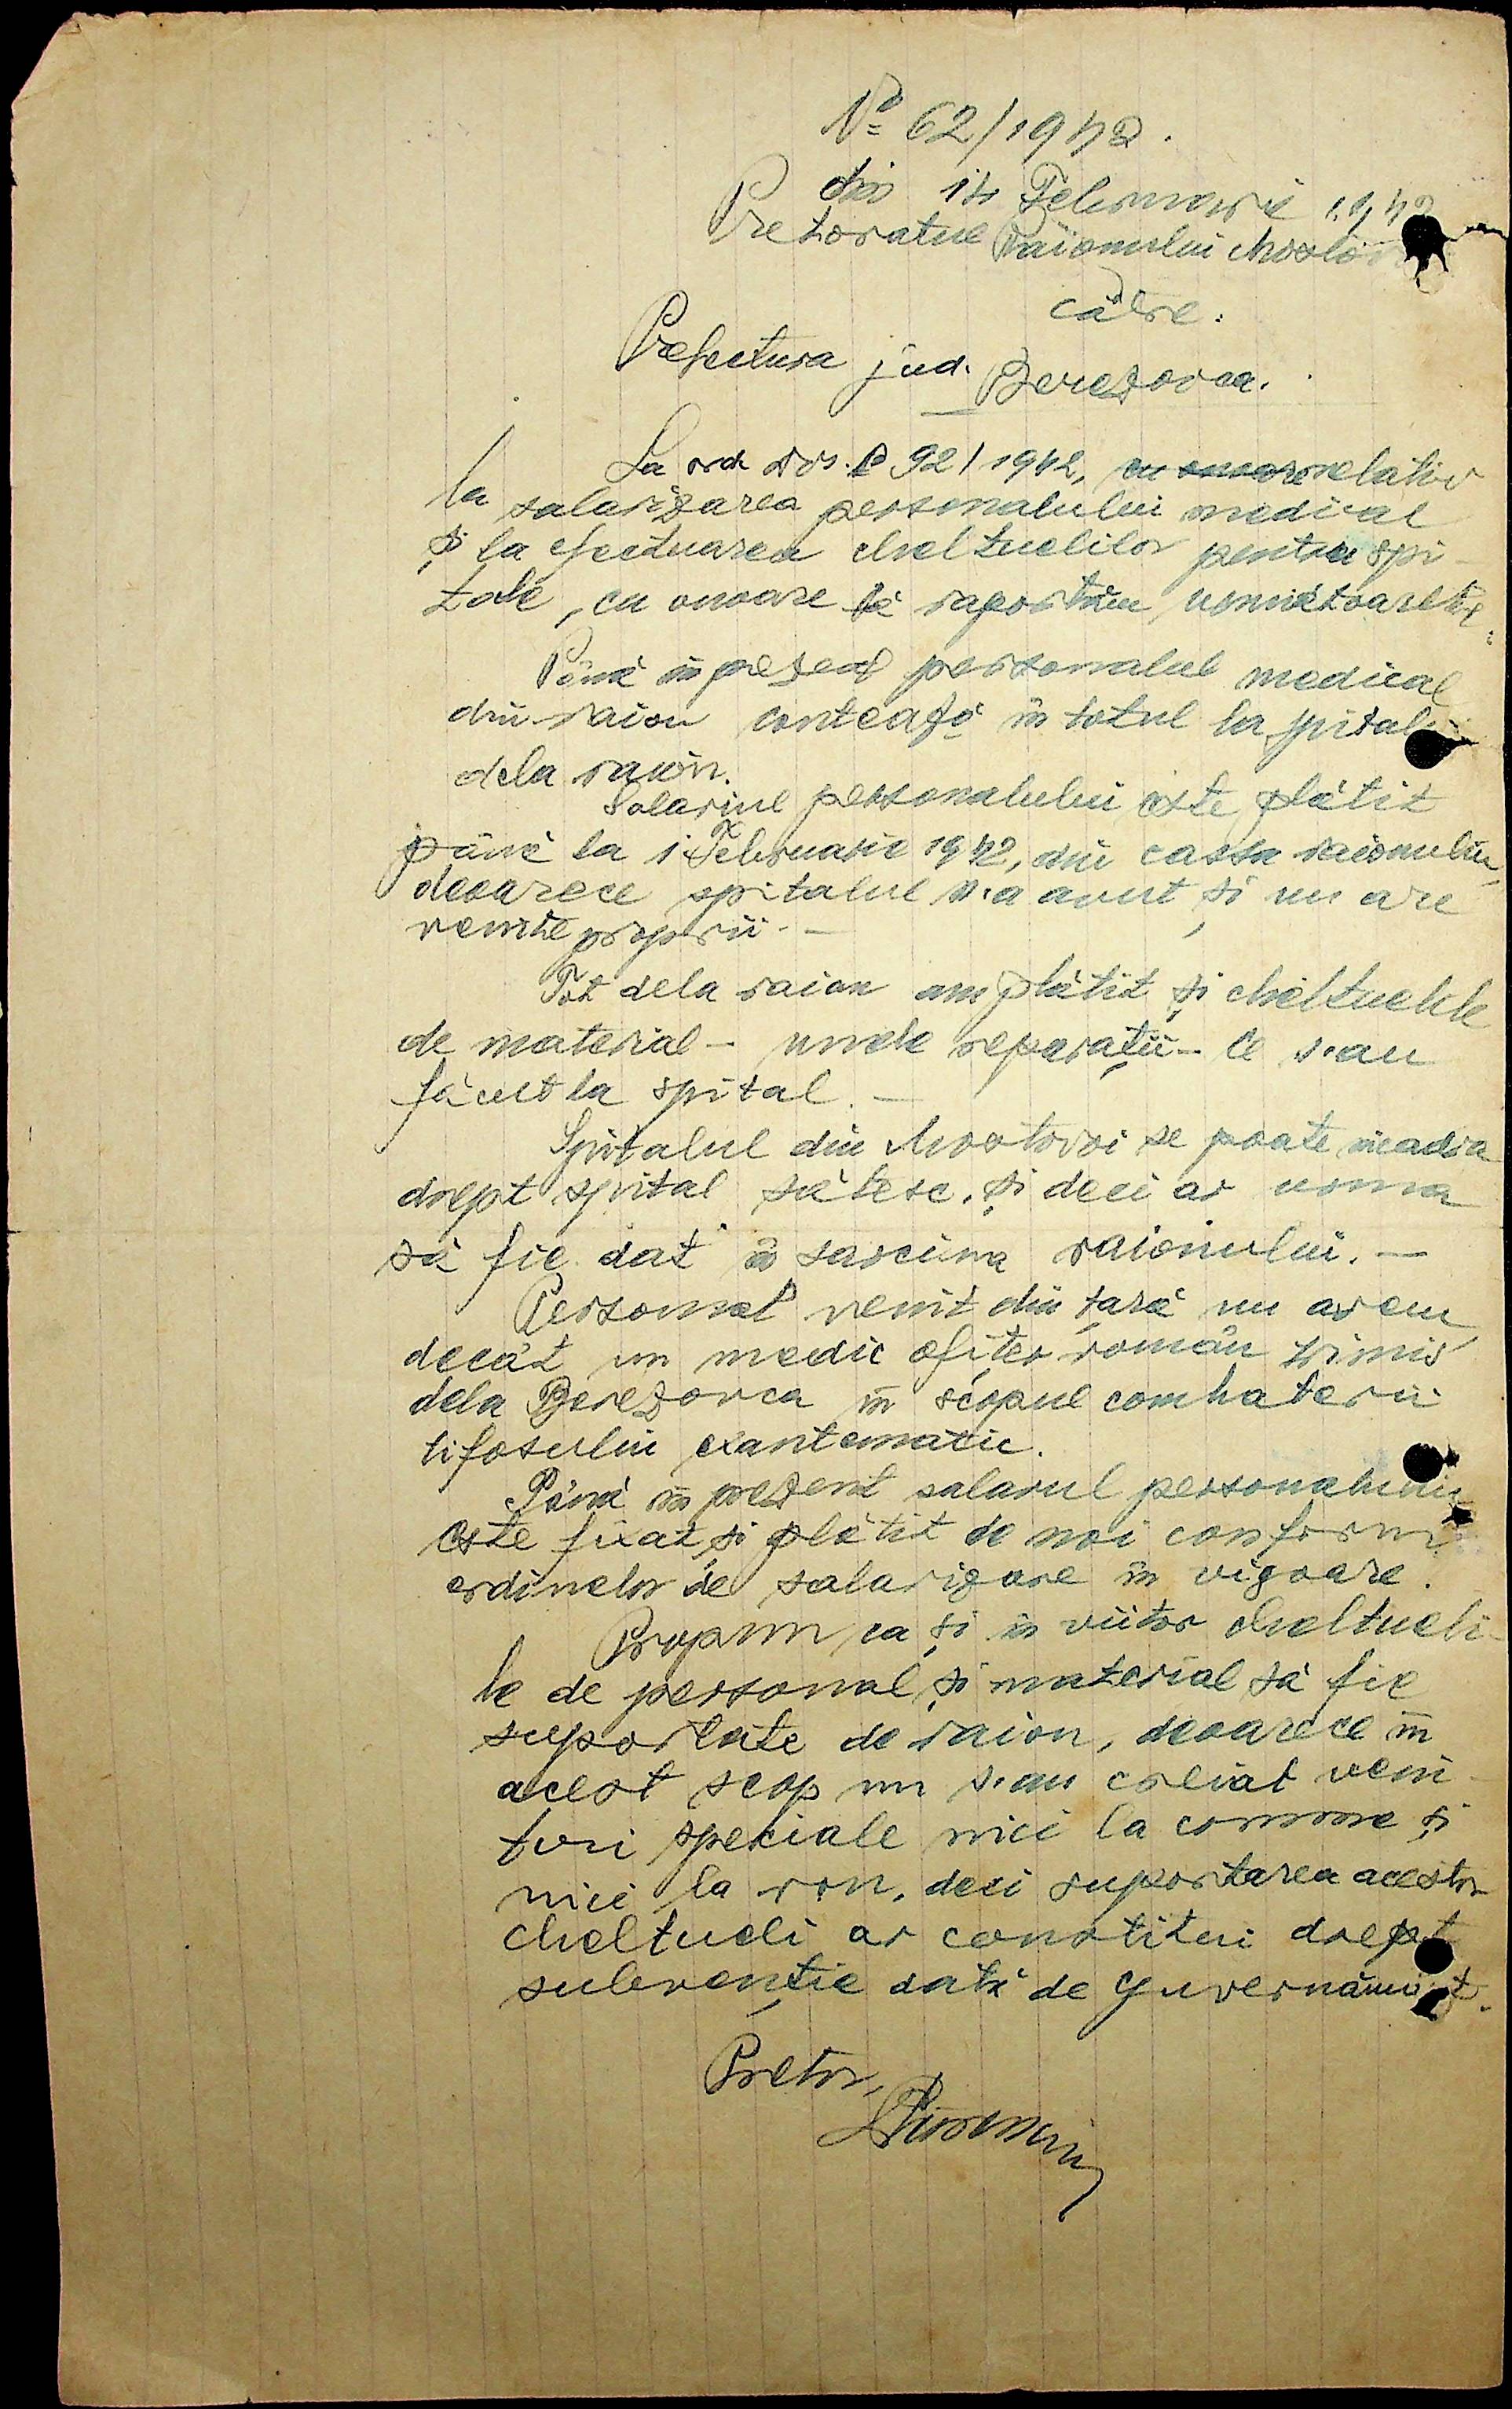 Nº 62/1942.
din 14 Februarie 1942
Pretoratul Raionului Mostovoi
către:
Prefectura jud. Berezovca.
La ord. Dvs. 92/1942, cu onoare relativ
la salarizarea personalului medical
și la efectuarea cheltuelilor pentru spi-
tale, cu onoare vă raportăm următoarele:
Până în prezent personalul medical
din raion contează în totul la spitalul
dela raion.
Salariul personalului este plătit
până la 1 Februarie 1942, din cassa raionului,
deoarece spitalul n'a avut și nu are
venite proprii.-
Tot dela raion am plătit și cheltuelile
de material - unele reparații - ce s'au
făcut la spital.-
Spitalul din Mostovoi se poate incadra
drept spital sătesc, și deci ar urma
să fie dat în sarcina raionului.-
Personal venit din țară nu avem
decât un medic ofițer român trimis
dela Berezovca în scopul combaterii
tifosului exantematic.
Până în prezent salarul personalului
este fixat și plătit de noi conform
ordinelor de salarizare în vigoare.
Propun ca și în viitor cheltueli-
le de personal și material să fie
suportate de raion, deoarece în
acest scop nu s'au creiat veni-
turi speciale nici la comune și
nici la ron, deci suportarea acestor
cheltueli ar constitui drept
subvenție dată de guvernământ.
Pretor,